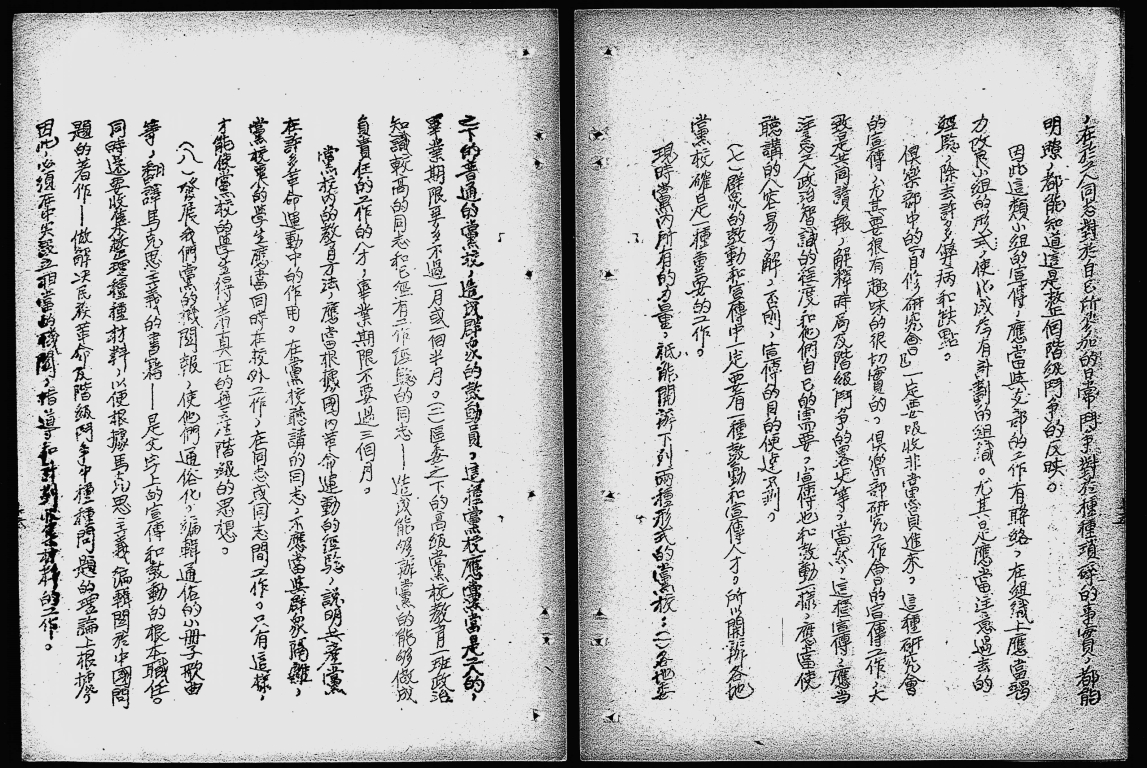 ，在於工人同志對於自己所參加的日常鬥爭對於種種瑣碎的事實，都能
明瞭，都能知道這是整個階級鬥爭的反映。
因此這類小組的宣傳，應當與支部的工作有聯絡，在組織上應當竭
力改良小組的形式，使化成為有計劃的組織。尤其是應當注意過去的
經驗，除去許多弊病和缺點。
俱樂部中的「自修研究會」一定要吸收非黨員進來。這種研究會
的宣傳，尤其要很有趣味的很切實的。俱樂部研究工作会的宣傳工作，大
致是共同讀報，解釋時局及階級鬥爭的畧史等，當然，這種宣傳，應當
注意工人政治智識的程度和他們自己的需要。宣傳也和鼓動一樣，應當使
聽講的人容易了解，否則，宣傳的目的便達不到。
(七)群眾的鼓動和宣傳中一定要有一種鼓動和宣傳人才。所以開辦各地
黨校，確是一種重要的工作。
現時黨內所有的力量，祇能開辦下列兩種形式的黨校：(一)各地委
之下的普通的黨校，造成群眾的鼓動員。這種黨校應當是工人的，
畢業期限至多不過一月或一個半月。(二)區委之下的高級黨校教育一班政治
知識較高的同志和已經有工作經驗的同志——造成能夠辦黨的能夠做成
負責任的工作的人才，畢業期限不要過三個月。
黨校內的教育方法，應當根據國內革命運動的經驗，說明共產黨
在許多革命運動中的作用。在黨校聽講的同志，不應當與群眾隔離，
黨校裏的學生應當同時在校外工作，在同志或同志間工作。只有這樣，
才能使黨校的學生得着真正的無產階級的思想。
(八)發展我們黨的機關報，使他們通俗化，編輯通俗的小冊子歌曲
等，翻譯馬克思主義的書籍——是文字上的宣傳和鼓動的根本職任。
同時還要收集及整理種種材料，以便根據馬克思主義編輯關於中國問
題的著作——做解決民族革命及階級鬥爭中種種問題的理論上根據。
因此，必須在中央設立相當的機關，指導和計劃收集材料的工作。